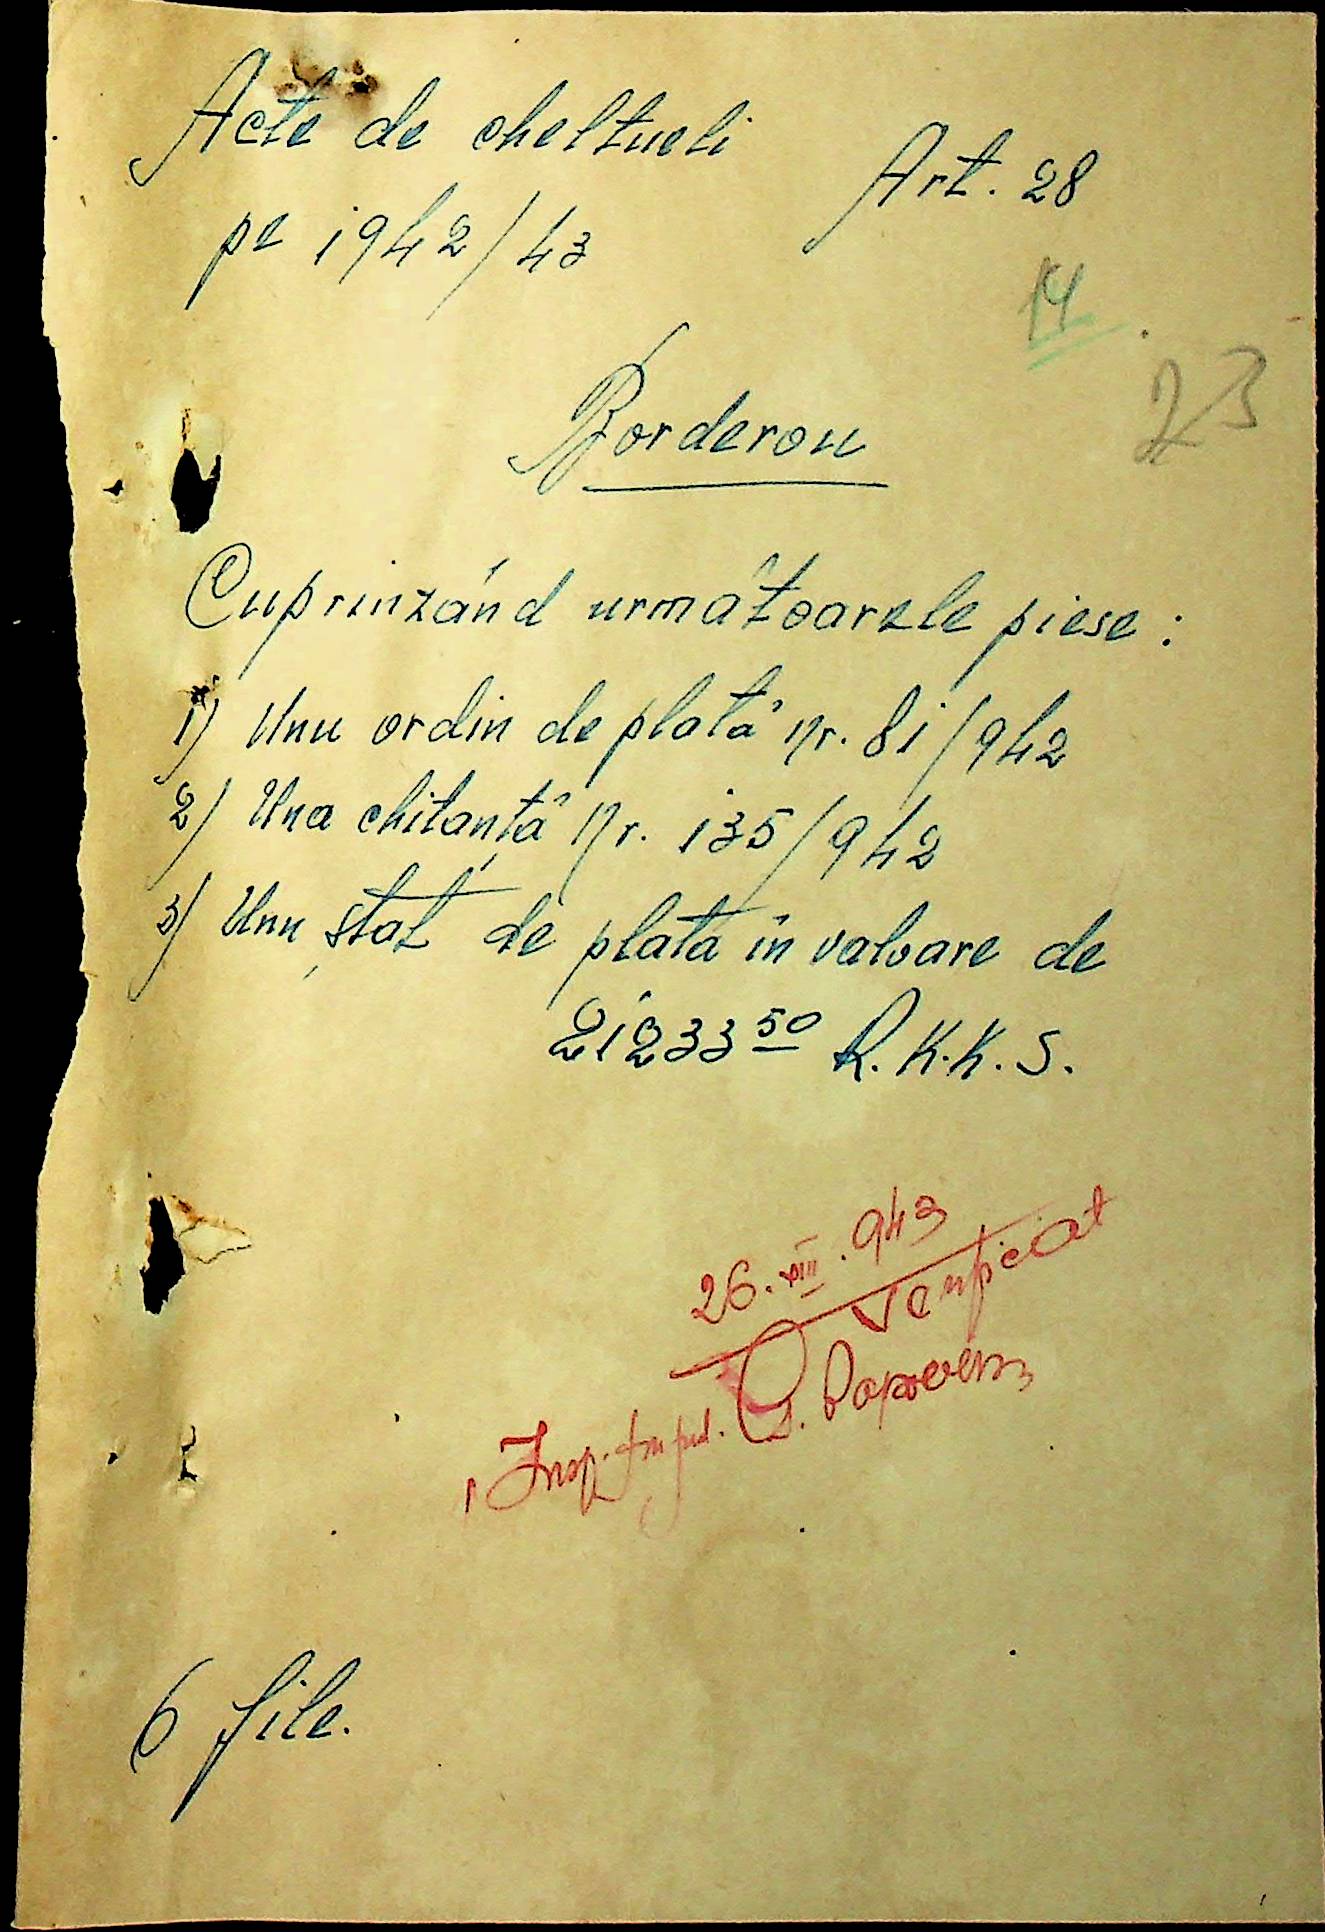 Acte de cheltueli
pe 1942/43
Art. 28
14
23
Borderou
Cuprinzând urmâtoarele piese:
1) Unu ordin de platâ Nr. 81/942
2) Una chitanţâ Nr. 135/942
3) Unu ştat de plata în valoare de
21233 50 R.K.K.S.
26.VIII.943
Verificat
Insp.
6 file.